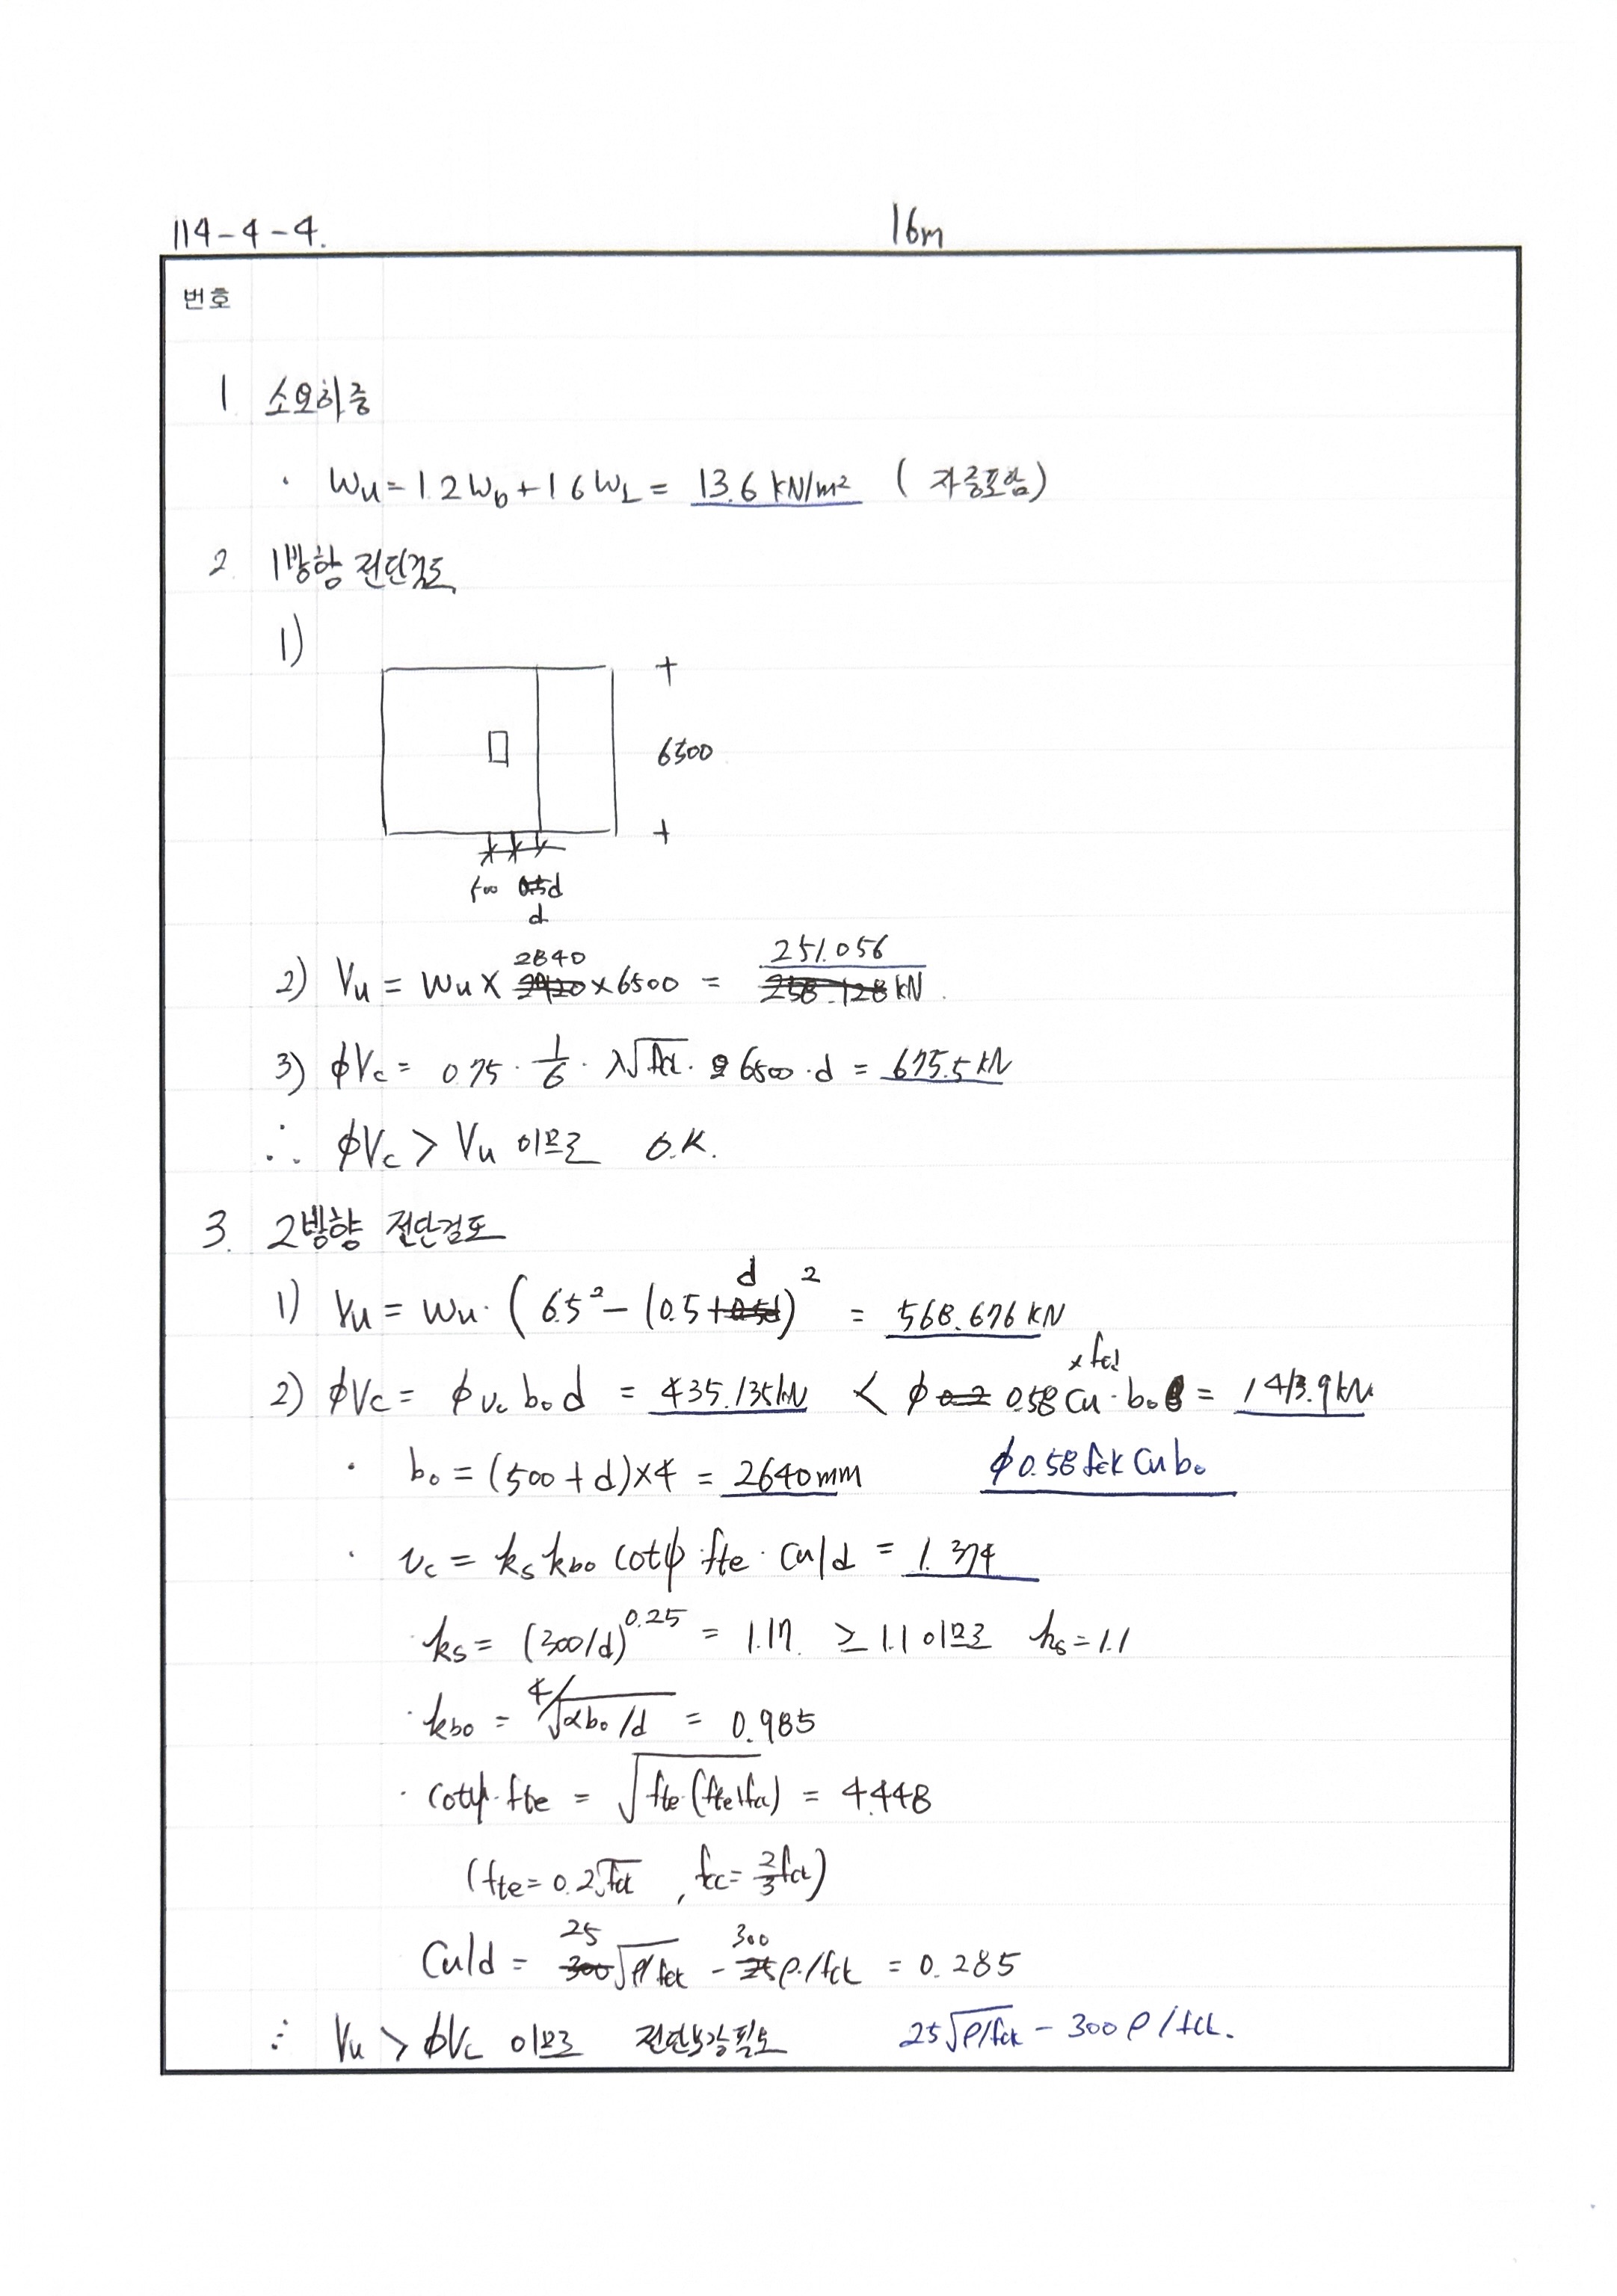 114-4-4.
16m
번호
1 소요하중
· Wu = 1.2WD + 1.6WL = 13.6 kN/m² (자중포함)
2. 1방향 전단검토
1)
6500
500 d
d
2) Vu = Wu × 2840 × 6500 = 251.056 kN
3) φVc = 0.75 · 1/6 · λ√fck · 6500 · d = 675.5 kN
∴ φVc > Vu 이므로 O.K.
3. 2방향 전단검토
1) Vu = Wu · (6.5² - (0.5 + d)² = 568.676 kN
2) φVc = φ vc bo d = 435.135kN < φ 0.58 Cu · bo × fck = 1413.9kN
· bo = (500 + d)×4 = 2640mm
φ 0.58 fck Cu bo
· vc = ks kbo cotψ fte · Cu/d = 1.374
· ks = (300/d)^0.25 = 1.17. ≥ 1.1 이므로 ks = 1.1
· kbo = ⁴√αbo/d = 0.985
· cotψ · fte = √fte(fte+fcc) = 4.448
(fte = 0.2√fck , fcc = 2/3 fck)
Cu/d = 25√ρ/fck - 300ρ/fck = 0.285
∴ Vu > φVc 이므로 전단보강필요
25√ρ/fck - 300 ρ/fck.